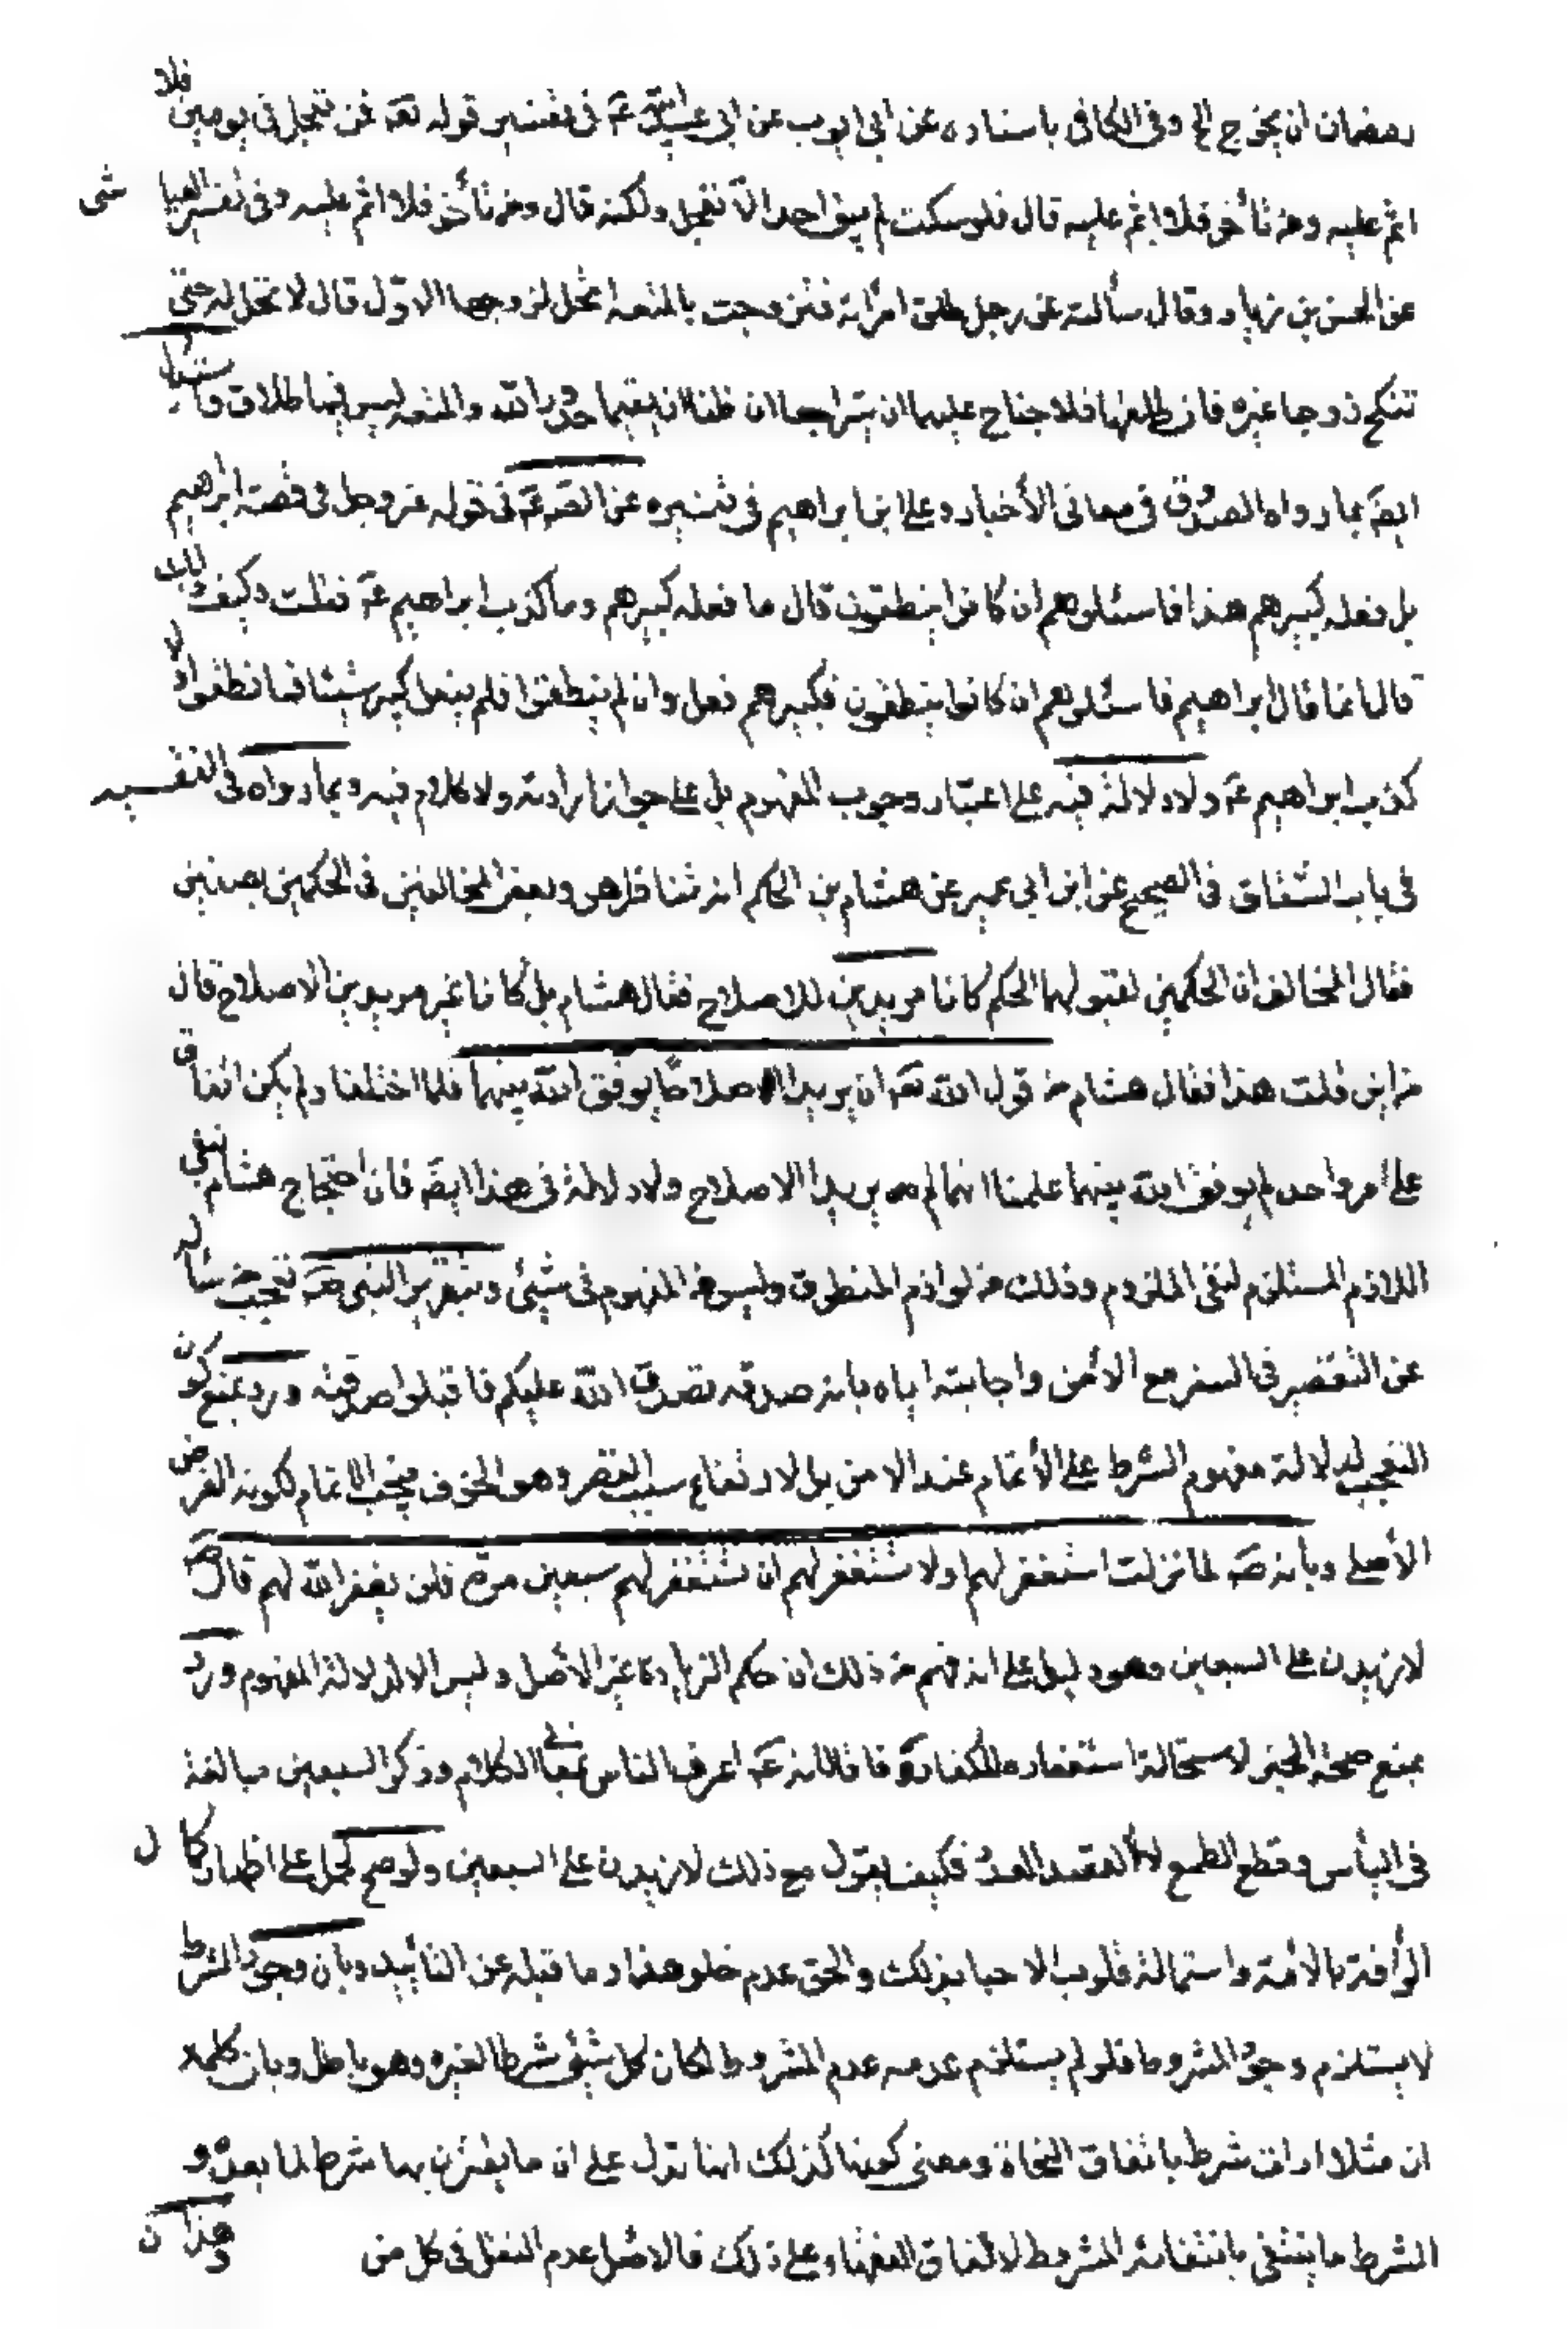 رمضان ان يخرج الخ وفى الكافى باسناده عن ابى ايوب عن ابى عبد الله عَ فى تفسير قوله تعَ فمن تعجل فى يومين فلا
اثم عليه ومن تأخر فلا اثم عليه قال فلو سكت لم يبق احد الّا تعجل ولكنه قال ومن تأخر فلا اثم عليه وفى تفسير العياشى
عن الحسن بن زياد وقال سألته عن رجل طلق امرأته فتزوجت بالمتعه اتحل لزوجها الاوّل قال لا تحل له حتى
تنكح زوجا غيره فان طلقها فلا جناح عليهما ان يتراجعا ان ظنا ان يقيما حدود الله والمتعه ليس فيها طلاق واستدل
ايضَ بما رواه الصدوق فى معانى الأخبار وعلى ابن ابراهيم فى تفسيره عن الصَ عَ فى قوله عز وجل فى قصة ابراهيم
بل فعله كبيرهم هذا فاسئلوهم ان كانوا ينطقون قال ما فعله كبيرهم وما كذب ابراهيم عَ فقلت وكيف ذلك
قال انما قال ابراهيم فاسئلوهم ان كانوا ينطقون فكبيرهم فعل وان لم ينطقوا فلم يفعل كبيرهم شيئا فما نطقوا وما
كذب ابراهيم عَ ولا دلالة فيه على اعتبار وجوب المفهوم بل على جواز ارادته ولا كلام فيه وبما رواه فى التفسير
فى باب الشقاق فى الصحيح عن ابن ابى عمير عن هشام بن الحكم انه تناظر هو وبعض المخالفين فى الحكمين بصفين
فقال المخالف ان الحكمين لقبولهما الحكم كانا مريدين للاصلاح فقال هشام بل كانا غير مريدين الاصلاح قال
من اين قلت هذا فقال هشام من قول الله تعَ ان يريدا اصلاحا يوفق الله بينهما فلما اختلفا ولم يكن اتفاق
على امر واحد لم يوفق الله بينهما علمنا انهما لم يريدا الاصلاح ولا دلالة فى هذا ايضَ فان احتجاج هشام بنفى
اللازم المستلزم لنفى الملزوم وذلك من لوازم المنطوق وليس من المفهوم فى شيئى وبتقرير النبى صَ تعجب من سأله
عن التقصير فى السفر مع الأمن واجابته اياه بانه صدقه تصدق الله عليكم فاقبلوا صدقته ورد بمنع كون
التعجب لدلالة مفهوم الشرط على الأتمام عند الامن بل لارتفاع سبب القصر وهو الخوف فيجب الاتمام لكونه الفرض
الأصلى وبأنه صَ لما نزلت استغفر لهم او لا تستغفر لهم ان تستغفر لهم سبعين مرة فلن يغفر الله لهم قال صَ
لازيدن على السبعين وهو دليل على انه فهم من ذلك ان حكم الزيادة غير الأصل وليس الا لدلالة المفهوم ورد
بمنع صحة الخبر لاستحالة استغفاره للكفار فانه عَ اعرف الناس بمعانى الكلام وذكر السبعين مبالغة
فى اليأس وقطع الطمع لا لقصد العدد فكيف يقول مع ذلك لازيدن على السبعين ولو صح لحمل على اظهار كمال
الرأفة بالأمة واستمالة قلوب الاحيا بذلك والحق عدم خلو هذا وما قبله عن التأييد وبان وجود الشرط
لا يستلزم وجود المشروط فلو لم يستلزم عدمه عدم المشروط لكان كل شيئ شرطا لغيره وهو باطل وبان كلمة
ان مثلا ادات شرط باتفاق النحاة ومعنى كونها كذلك انها تدل على ان ما يقترن بها شرط لما بعده و
الشرط ما ينتفى بانتفائه المشروط لاتفاق الفقهاء على ذلك فالاصل عدم النقل فى كل من
وهذا ن